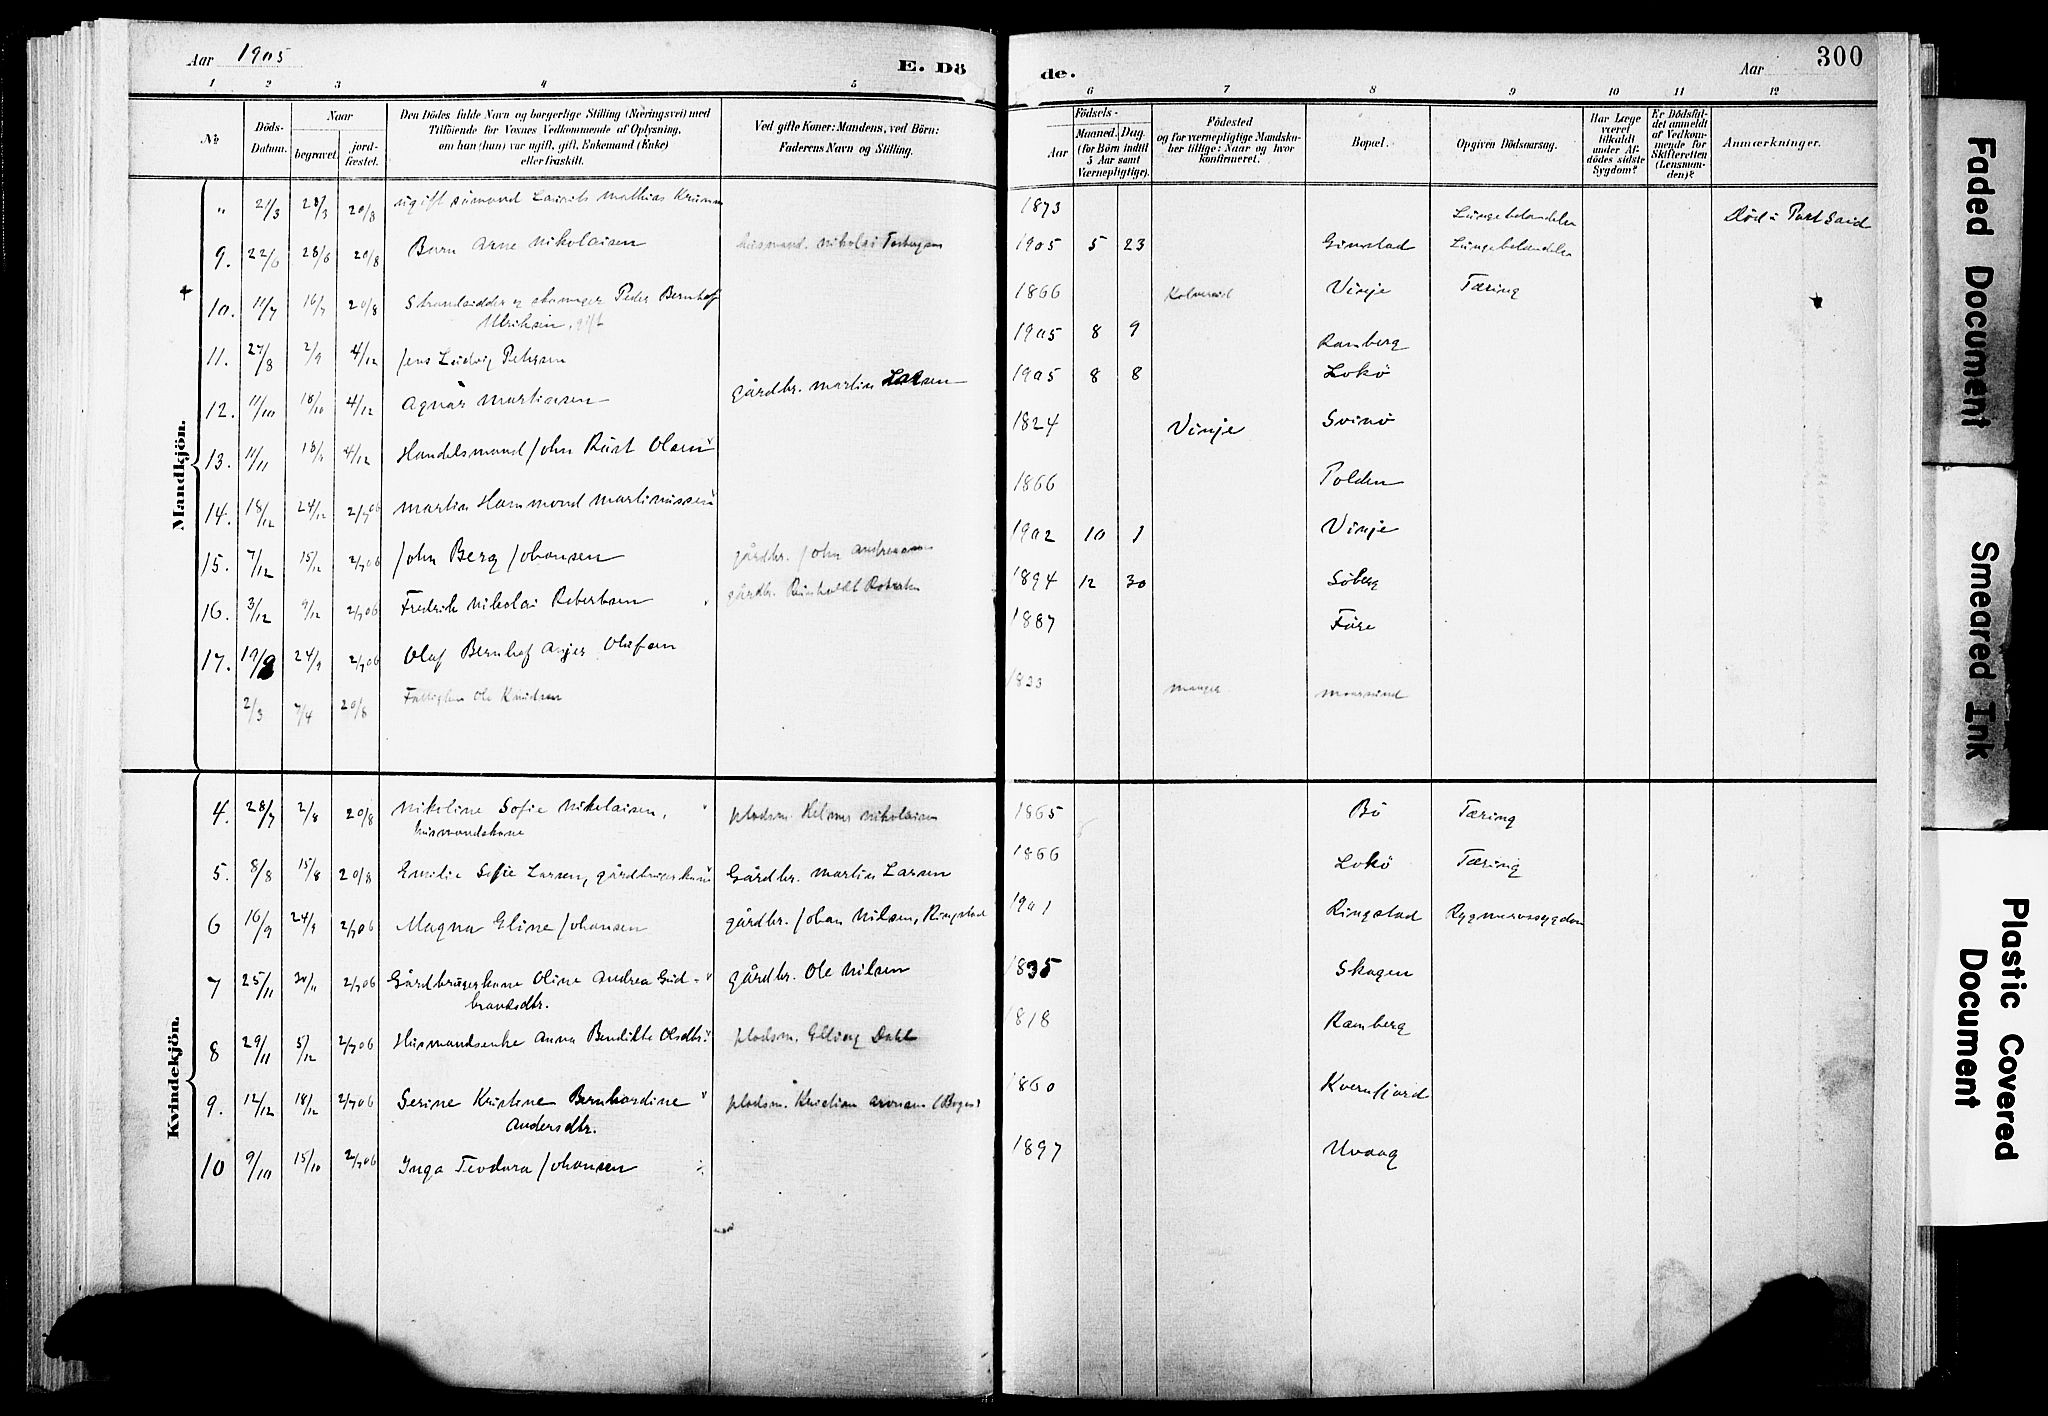 Aar 1905
E. Dö
de.
Aar
300
1 2 3 4 5 6 7 8 9 10 11 12
No
Döds-Datum.
Naar
begravet.
jord-fæstet.
Den Dödes fulde Navn og borgerlige Stilling (Næringsvei) med
Tilföiende for Voxnes Vedkommende af Oplysning,
om han (hun) var ugift, gift, Enkemand (Enke)
eller fraskilt.
Ved gifte Koner: Mandens, ved Börn:
Faderens Navn og Stilling.
Födsels-
Aar
Maaned. Dag.
(for Börn indtil
5 Aar samt
Værnepligtige).
Födested
og for værnepligtige Mandskaber tillige: Naar og hvor
konfirmeret.
Bopæl.
Opgiven Dödsaarsag.
Har Læge
været
tilkaldt
under Afdödes sidste
Sygdom?
Er Dödsfaldet anmeldt
af Vedkommende for
Skifteretten
(Lensmanden)?
Anmærkninger.
Mandkjön.
" 21/3 28/3 20/8 ugift sömand Laurits Mathias 1873 Lungebetændelse Död i Port Said
9. 22/6 28/6 20/8 Barn Arne Nikolaisen husmand. Nikolai 1905 5 23 Gimstad Lungebetændelse
10. 11/7 16/7 20/8 Strandsidder og Peder Bernhof
Ulriksen, gift 1866 Vinje Tæring
11. 27/8 2/9 4/12 Jens Ludvig Petersen 1905 8 9 Ramberg
12. 11/10 18/10 4/12 Agnar Martinsen gårdbr. Martin Larsen 1905 8 8 Lokö
13. 11/11 18/11 4/12 Handelsmand John Rist Olsen 1824 Vinje Svinö
14. 18/12 24/12 2/7 06 Martin Hammond Martinussen 1866 Polden
15. 7/12 15/12 2/7 06 John Berg Johansen gårdbr. John Andreassen 1902 10 1 Vinje
16. 3/12 9/12 2/7 06 Fredrik Nikolai Robertsen gårdbr. Reinholdt 1894 12 30 Söberg
17. 19/9 24/9 2/7 06 Olaf Bernhof Olufsen 1887 Före
2/3 7/4 20/8 Ole Knudsen 1823 Manger
Kvindekjön.
4. 28/7 2/8 20/8 Nikoline Sofie Nikolaisen,
husmandskone pladsm. Helmer Nikolaisen 1865 Bö Tæring
5. 8/8 15/8 20/8 Emilie Sofie Larsen, gårdbrugerkone Gårdbr. Martin Larsen 1866 Lokö Tæring
6 16/9 24/9 2/7 06 Magna Eline Johansen gårdbr. Johan Nilsen, Ringstad 1901 Ringstad Rygmarvssygdom
7 25/11 30/11 2/7 06 Gårdbrugerkone Oline Andrea Gud-
brandsdtr. gårdbr. Ole Nilsen 1835 Skagen
8 29/11 5/12 2/7 06 Husmandsenke Anna Bendikte Olsdtr. pladsm. Elling Dahl 1818 Ramberg
9. 12/12 18/12 2/7 06 Serine Kristine Bernhardine
Andersdtr. pladsm. Kristian Aronsen (Bogen) 1860 Kvernfjord
10 9/10 15/10 2/7 06 Inga Teodora Johansen 1897 Uvaag
Faded Document
Smeared Ink
Plastic Covered Document